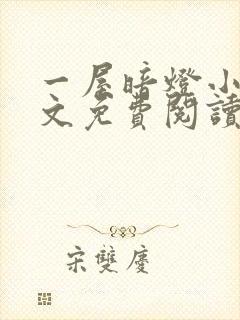 一屋暗燈小
文免費閱讀
宋雙慶